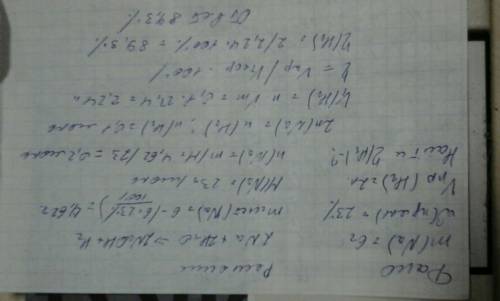 Дано
m(Na) = 6г
ω(прим) = 23%
Vпр (H₂) = 2л
Найти η(H₂)-?
Решение
2Na + 2H₂O → 2NaOH + H₂
m чист (Na) = 6 - (6·23%/100%) = 4,62г
M(Na) = 23г/моль
n(Na) = m/M = 4,62/23 = 0,2 моль
2n(H₂) = n(Na); n(H₂) = 0,1 моль
V(H₂) = n·Vm = 0,1·22,4 = 2,24л
η = Vпр/Vтеор · 100%
η(H₂) = 2/2,24·100% = 89,3%
Ответ 89,3%